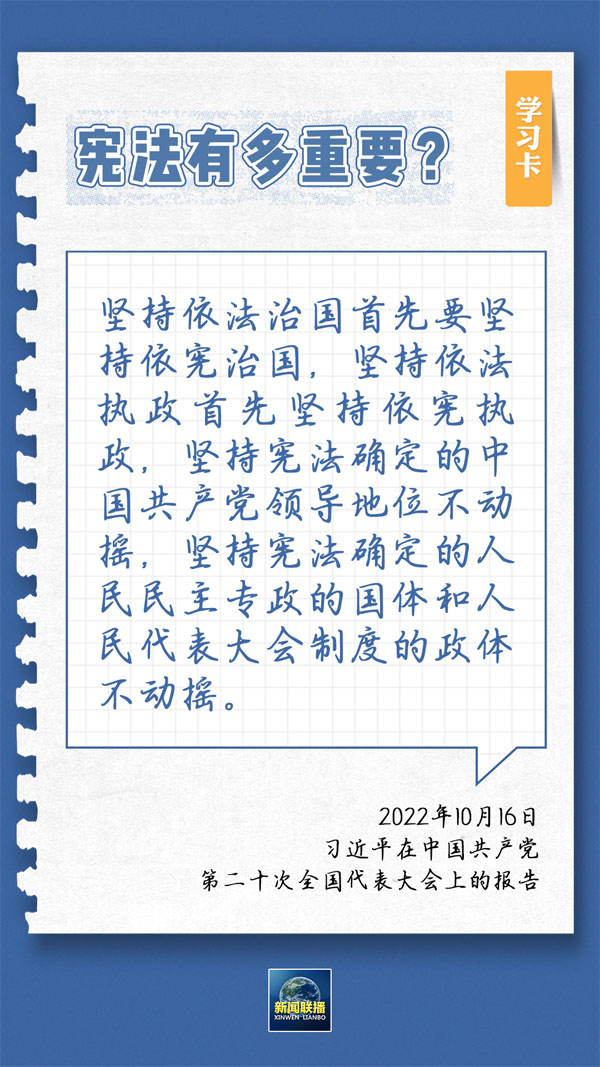 宪法有多重要？
学习卡
坚持依法治国首先要坚
持依宪治国，坚持依法
执政首先坚持依宪执
政，坚持宪法确定的中
国共产党领导地位不动
摇，坚持宪法确定的人
民民主专政的国体和人
民代表大会制度的政体
不动摇。
2022年10月16日
习近平在中国共产党
第二十次全国代表大会上的报告
新闻联播
XINWEN LIANBO